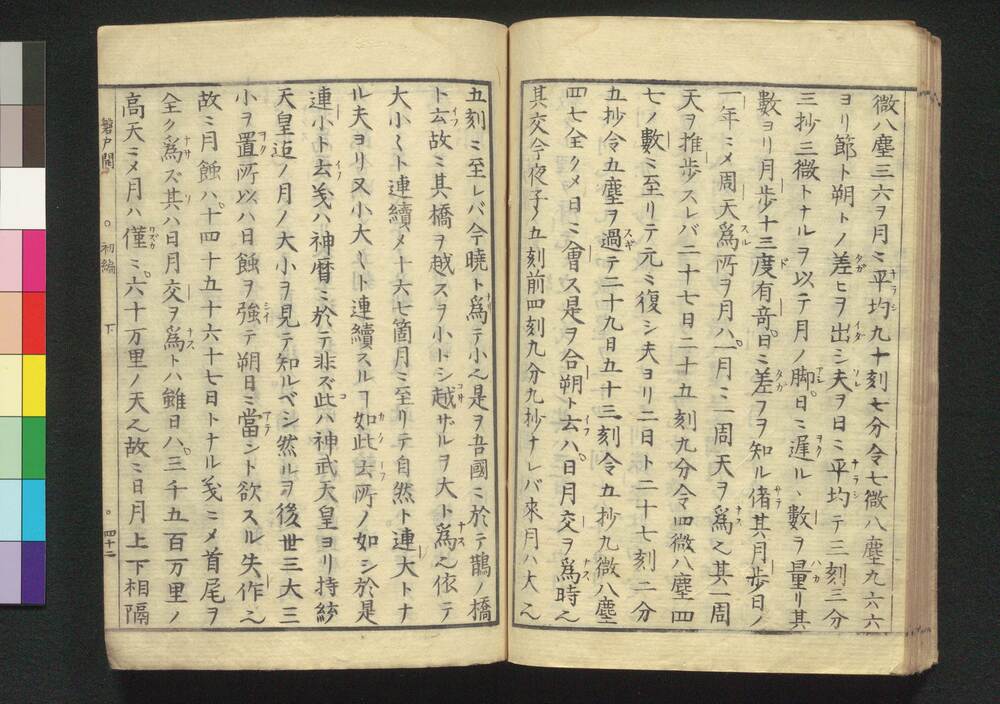 微八塵三六ヲ月ニ平均九十刻七分令七微八塵九六六
ヨリ節ト朔トノ差ヒヲ出シ夫ヲ日ニ平均テ三刻三分
三抄三微トナルヲ以テ月ノ脚日ニ遅ル丶數ヲ量リ其
數ヨリ月歩十三度有竒日ニ差フヲ知ル偖其月歩日ノ
一年ニメ周天為所ヲ月ハ一月ニ一周天ヲ為之其一周
天ヲ推歩スレバ二十七日二十五刻九分令四微八塵四
七ノ數ニ至リテ元ニ復シ夫ヨリ二日ト二十七刻二分
五抄令五塵ヲ過テ二十九日五十三刻令五抄九微八塵
四七全クメ日ニ會ス是ヲ合朔ト云ハ日月交ヲ為時之
其交今夜子ノ五刻前四刻九分九抄ナレバ來月ハ大之
五刻ニ至レバ今曉ト為テ小之是ヲ吾國ニ於テ鵲ノ橋
ト云故ニ其橋ヲ越スヲ小トシ越ザルヲ大ト為之依テ
大小〱ト連續メ十六七箇月ニ至リテ自然ト連大トナ
ル夫ヨリ又小大〱ト連續スルヿ如此云所ノ如シ於是
連小ト云義ハ神暦ニ於テ非ズ此ハ神武天皇ヨリ持綂
天皇迠ノ月ノ大小ヲ見テ知ルベシ然ルヲ後世三大三
小ヲ置所以ハ日蝕ヲ強テ朔日ニ當ント欲スル失作之
故ニ月蝕ハ十四十五十六十七日トナル義ニメ首尾ヲ
全ク為ズ其ハ日月交ヲ為トハ雖日ハ三千五百万里ノ
高天ニメ月ハ僅ニ六十万里ノ天之故ニ日月上下相隔
磐戸開 初編 下 四十二